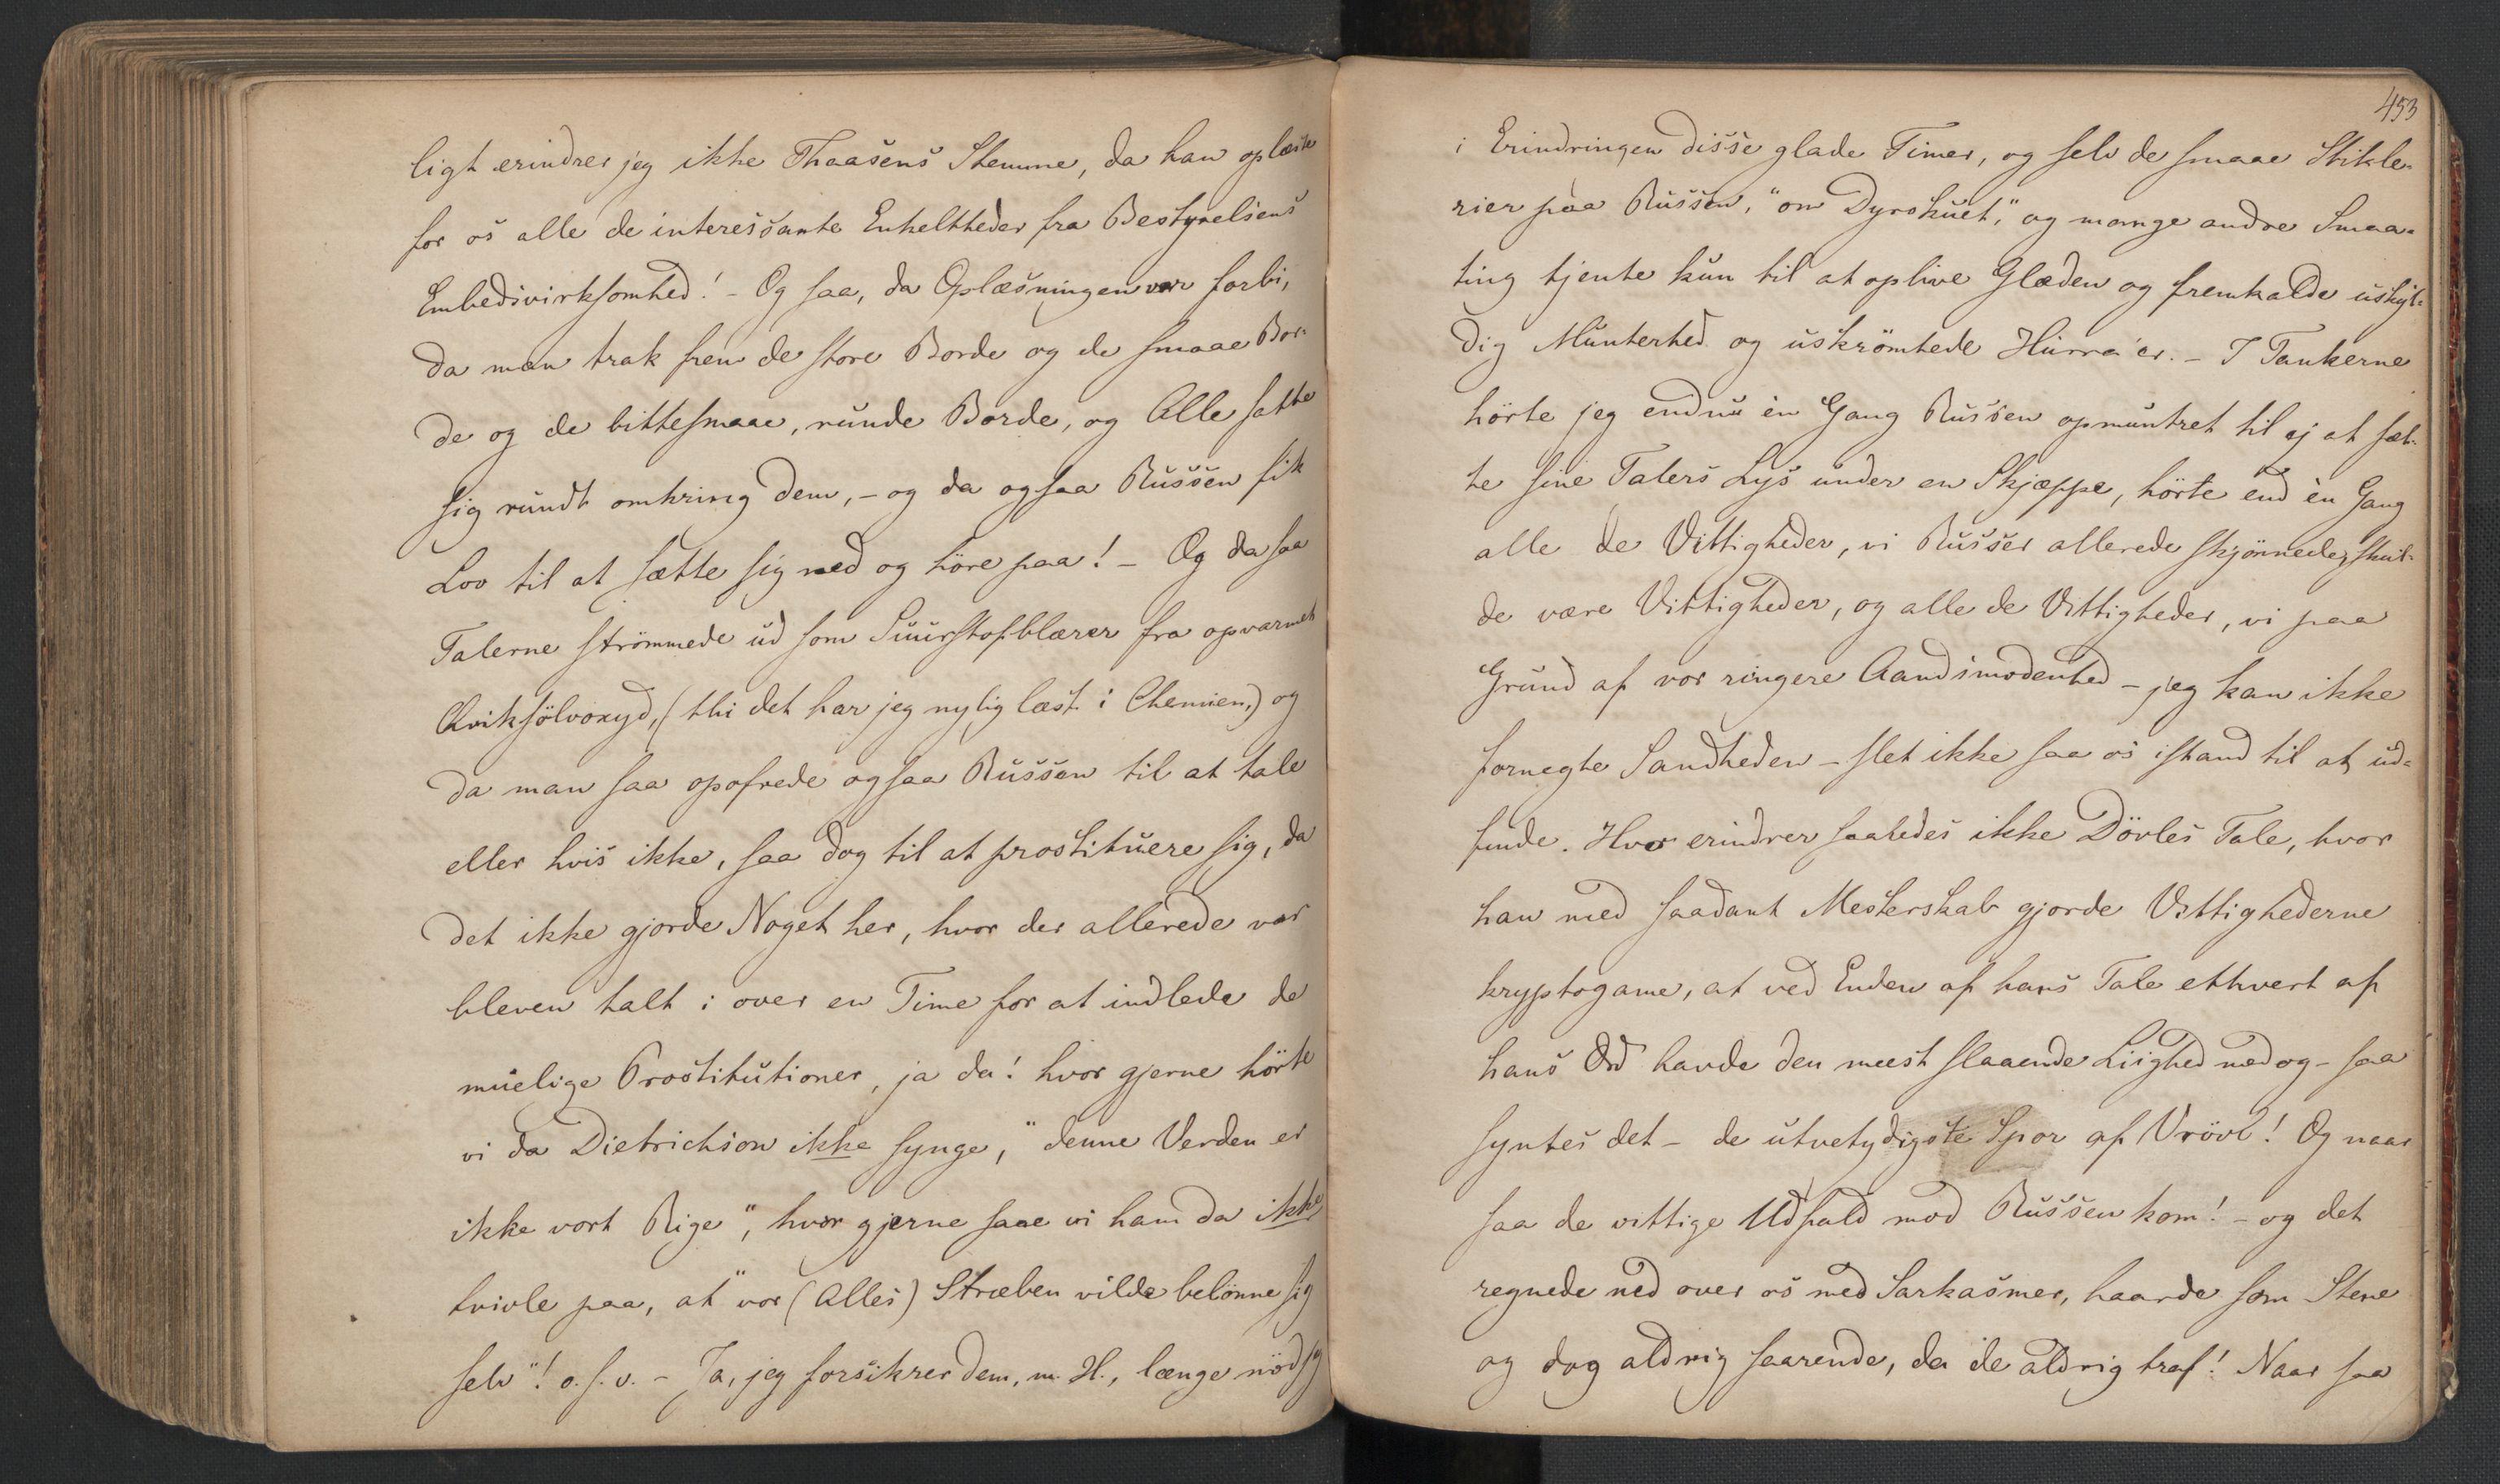 ligt erindrer jeg ikke Thaasens Stemme, da han oplæste
for os alle de interessante Enkeltheder fra Bestyrelsens
Embedsvirksomhed! - Og saa, da Oplæsningen var forbi,
da man trak frem de store Borde og de smaae Bor-
de og de bittesmaae, runde Borde, og Alle satte
sig rundt omkring dem, - og da ogsaa Russen fik
Lov til at sætte sig ned og höre paa! - Og da saa
Talerne strömmede ud som Suurstofblærer fra opvarmet
Kviksölvoxyd, (thi det har jeg nylig læst i Chemien,) og
da man saa opofrede ogsaa Russen til at tale
eller hvis ikke, saa dog til at prostituere sig, da
det ikke gjorde Noget her, hvor der allerede var
bleven talt i over en Time for at indlede de
muelige Prostitutioner, ja da! hvor gjerne hörte
vi da Dietrichson ikke synge, "denne Verden er
ikke vort Rige", hvor gjerne saae vi ham da ikke
tvivle paa, at "vor (Alles) Stræben vilde belönne sig
selv"! o.s.v. - Ja, jeg forsikrer dem, m. H., længe nöd jeg
453
i Erindringen disse glade Timer, og selv de smaae Stikle-
rier paa Russen, "om Dyrskuet," og mange andre Smaa-
ting tjente kun til at oplive Glæden og fremkalde uskyl-
dig Munterhed og uskrömtede Hurra'er. - I Tankerne
hörte jeg endnu èn Gang Russen opmuntret til ej at sæt-
te sine Talers Lys under en Skjæppe, hörte end èn Gang
alle de Vittigheder, vi Russer allerede skjönnede, skul-
de være Vittigheder, og alle de Vittigheder, vi paa
Grund af vor ringere Aandsmodenhed - jeg kan ikke
fornegte Sandheden - slet ikke saa os istand til at ud-
finde. Hvor erindrer saaledes ikke Dövles Tale, hvor
han med saadant Mesterskab gjorde Vittighederne
kryptogame, at ved Enden af hans Tale ethvert af
hans Ord havde den meest slaaende Liighed med og - saa
syntes det - de utvetydigste Spor af Vrövl! Og naar
saa de vittige Udfald mod Russen kom! - og det
regnede ned over os med Sarkasmer, haarde som Stene
og dog aldrig saarende, da de aldrig traf! Naar saa